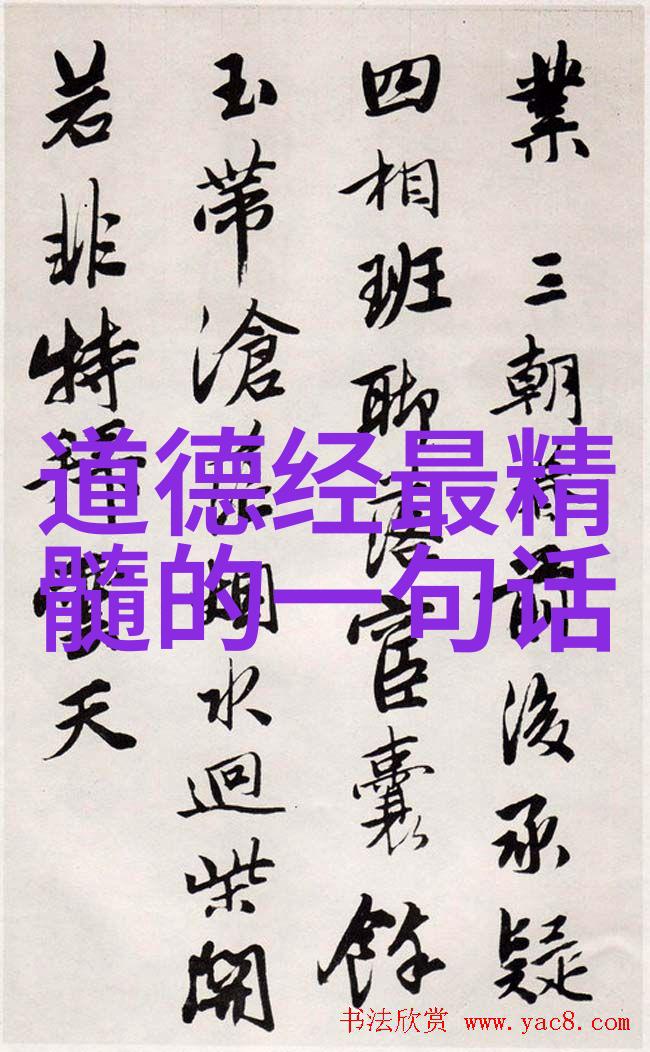 業 三朝前後承疑
四相班落宦囊餘
玉帶滄烟水迴柴開
若非特天
道德经最精
髓的一句话
书法欣赏 www.yac8.com